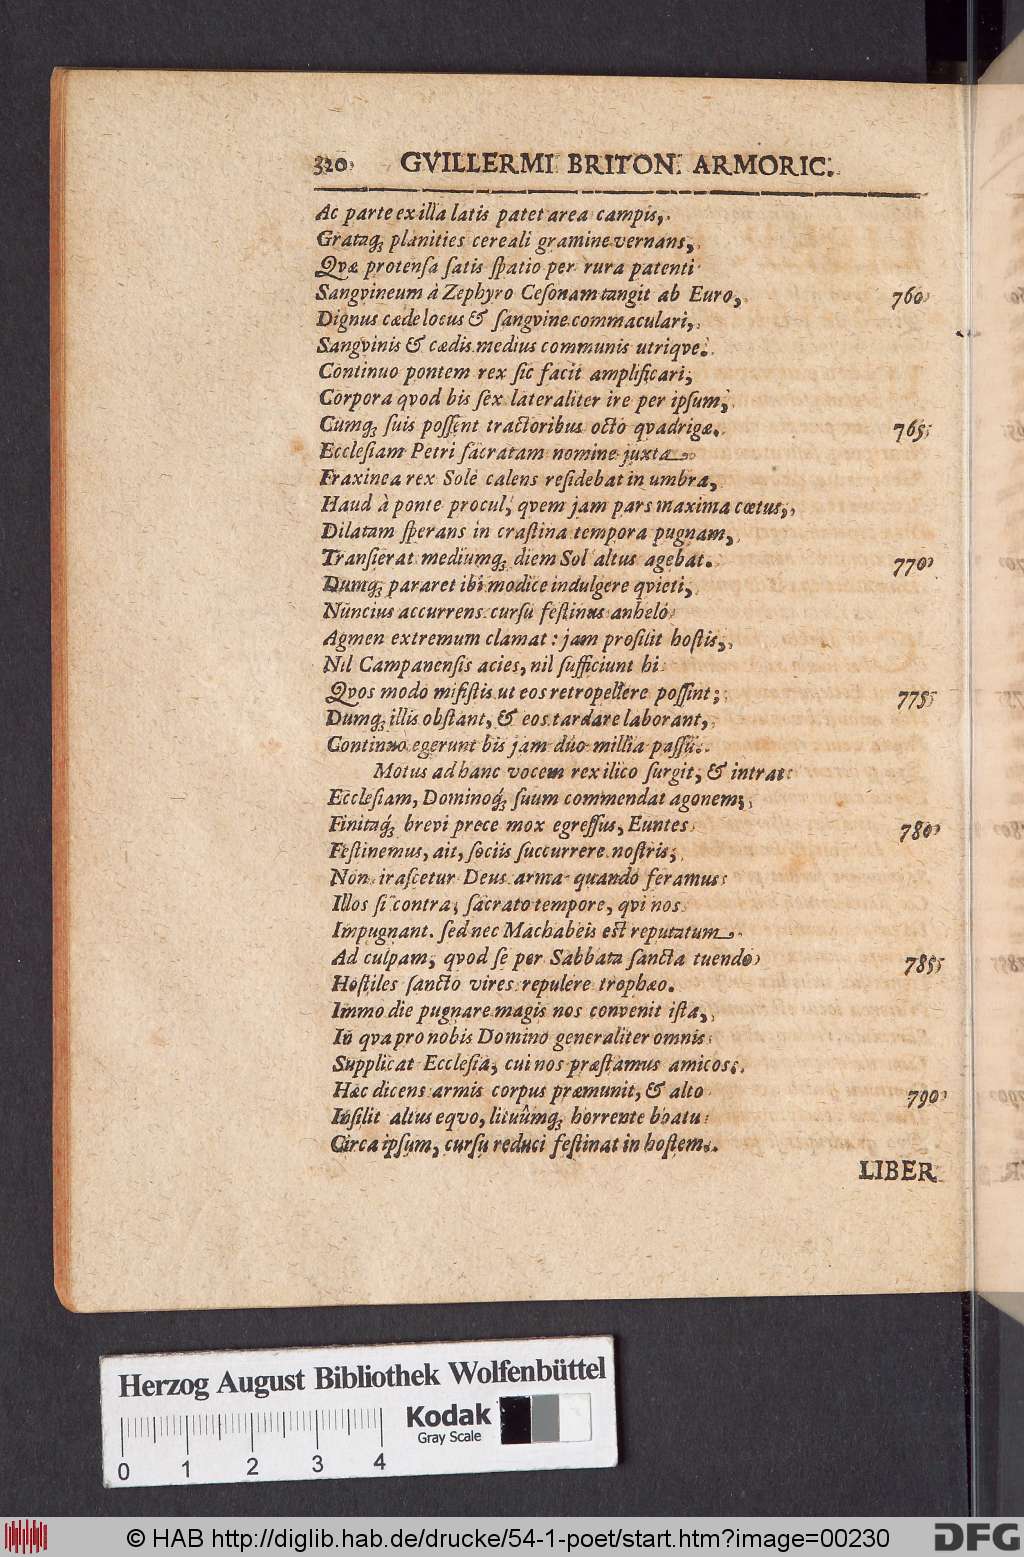 320 GVILLERMI BRITON. ARMORIC.
Ac parte ex illa latis patet area campis,
Grataq; planities cereali gramine vernans,
Qvæ protensa satis spatio per rura patenti
Sangvineum à Zephyro Cesonam tangit ab Euro, 760
Dignus cæde locus & sangvine commaculari,
Sangvinis & cædis medius communis utriqve.
Continuo pontem rex sic facit amplificari,
Corpora qvod bis sex lateraliter ire per ipsum,
Cumq; suis possent tractoribus octo qvadrigæ. 765
Ecclesiam Petri sacratam nomine juxta
Fraxinea rex Sole calens residebat in umbra,
Haud à ponte procul, qvem jam pars maxima cœtus,
Dilatam sperans in crastina tempora pugnam,
Transierat mediumq; diem Sol altus agebat. 770
Dumq; pararet ibi modice indulgere qvieti,
Nuncius accurrens cursu festinus anhelo
Agmen extremum clamat: jam prosilit hostis,
Nil Campanensis acies, nil sufficiunt hi
Qvos modo misistis ut eos retropellere possint; 775
Dumq; illis obstant, & eos tardare laborant,
Continuo egerunt bis jam duo millia passûs.
Motus ad hanc vocem rex ilico surgit, & intrat
Ecclesiam, Dominoq́; suum commendat agonem;
Finitaq́; brevi prece mox egressus, Euntes 780
Festinemus, ait, sociis succurrere nostris;
Non irascetur Deus arma quando feramus
Illos si contra, sacrato tempore, qvi nos
Impugnant. sed nec Machabeis est reputatum
Ad culpam, qvod se per Sabbata sancta tuendo 785
Hostiles sancto vires repulere trophæo.
Immo die pugnare magis nos convenit ista,
In qva pro nobis Domino generaliter omnis
Supplicat Ecclesia, cui nos præstamus amicos.
Hæc dicens armis corpus præmunit, & alto 790
Insilit altus eqvo, lituûmq; horrente boatu
Circa ipsum, cursu reduci festinat in hostem.
LIBER
Herzog August Bibliothek Wolfenbüttel
Kodak
Gray Scale
0 1 2 3 4
© HAB http://diglib.hab.de/drucke/54-1-poet/start.htm?image=00230
DFG